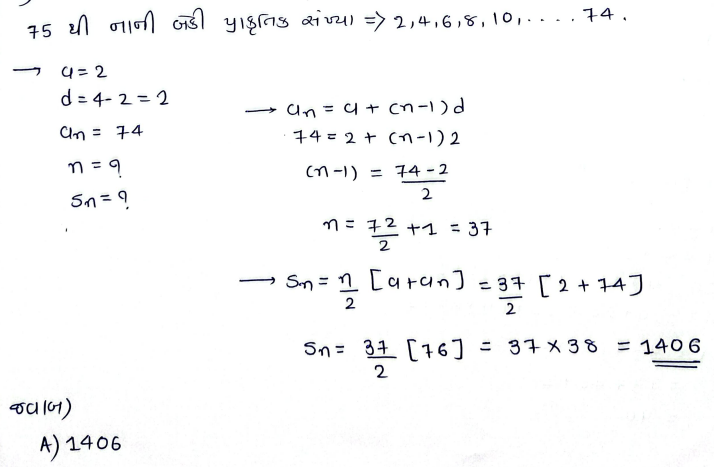 75 થી નાની બેકી પ્રાકૃતિક સંખ્યા => 2,4,6,8,10,.....74.
→ a=2
d=4-2=2
an = 74
n=?
Sn=?
→ an = a + (n-1)d
74 = 2 + (n-1)2
(n-1) = 74-2/2
n = 72/2 +1 = 37
→ Sn = n/2 [a+an] = 37/2 [2+74]
Sn = 37/2 [76] = 37×38 = 1406
જવાબ)
A) 1406